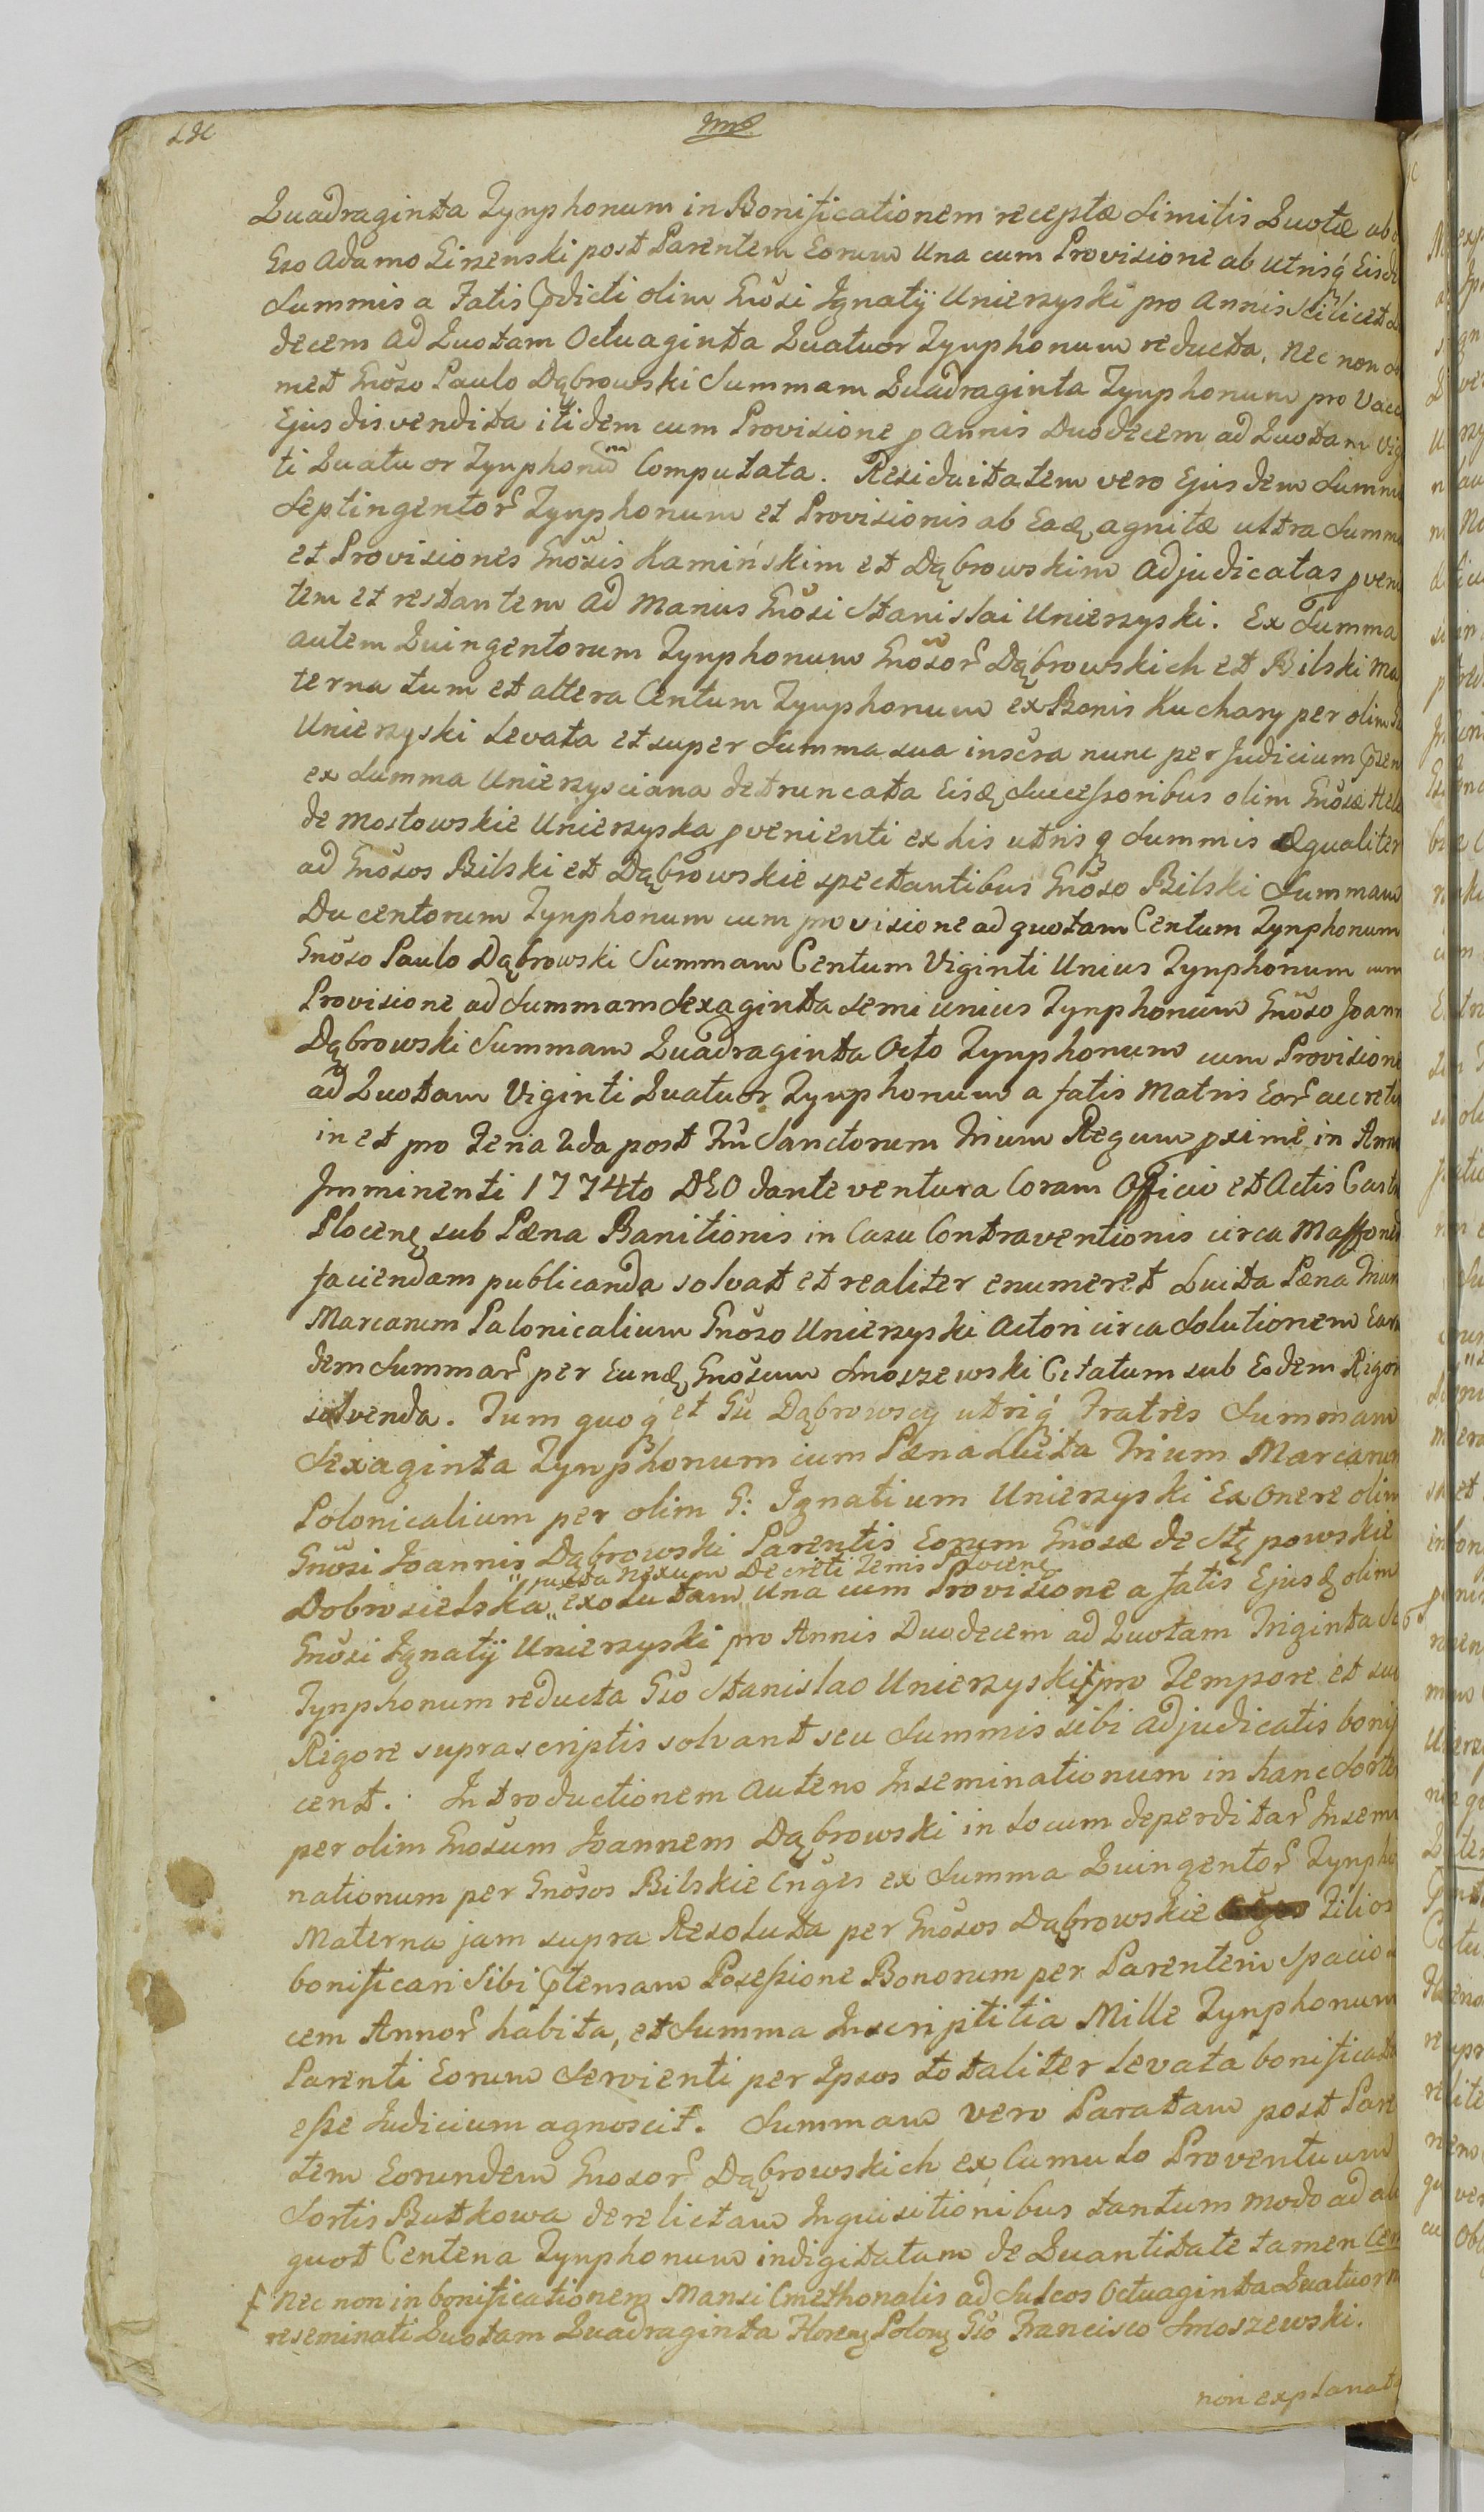 Quadraginta Tynphonum in Bonificationem receptæ similis Quotæ ab
Gso Adamo Lirzenski post Parentem Eorum Una cum Provisione ab utrisq́ Eisd
Summis a Fatis Prdicti olim Gnŏsi Ignatÿ Unierzyski pro Annis Scilicet
decem ad Quotam Octuaginta Quatuor Tynphonum reducta, nec non
met Gnŏso Paulo Dąbrowski Summam Quadraginta Tynphonum pro Vacc
Ejus disvendita itidem cum Provisione p annis Duodecem ad Quotam Vig
ti Quatuor Tynphonū Computata. Residuitatem vero Ejusdem Summ
Septingentor Tynphonum et Provisionis ab Eadę agnitæ ultra Summ
et Provisiones Gnŏsis Kamińskim et Dąbrowskim adjudicatas pven
tem et restantem ad Manus Gnŏsi Stanislai Unierzyski. Ex Summa
autem Quingentorum Tynphonum Gnŏsor Dąbrowskich et Bilski Ma
terna tum et altera Centum Tynphonum ex Bonis Kuchary per olim
Unierzyski Levata et super Summa sua inscra nunc per Judicium Przen
ex Summa Unierzysciana detruncata Eisdę Successoribus olim Gnŏsæ Hele
de Mostowskie Unierzyska pvenienti ex his utrisq Summis Æqualiter
ad Gnŏsos Bilski et Dąbrowskie spectantibus Gnŏso Bilski Summam
Ducentorum Tynphonum cum provisione ad quotam Centum Tynphonum
Gnŏso Paulo Dąbrowski Summam Centum Viginti Unius Tynphonum cum
Provisione ad Summam Sexaginta semi unius Tynphonum Gnŏso Joann
Dąbrowski Summam Quadraginta Octo Tynphonum cum Provisione
ad Quotam Viginti Quatuor Tynphonum a fatis Matris Eor accreta
in et pro Feria 2da post Fm̄ Sanctorum Trium Regum pxime in Anno
Imminenti 1774to DEO dante ventura Coram Officio et Actis Castr
Plocenę sub Pæna Banitionis in Casu Contraventionis circa
faciendam publicanda solvat et realiter enumeret Luita Pæna Trium
Marcarum Polonicalium Gnŏso Unierzyski Actori circa Solutionem Earu
dem Summar per Eundę Gnŏsum Smoszewski Citatum sub Eodem Rigore
solvenda. Tum quoq́ et Gsi Dąbrowscy utriq́ Fratres Summam
Sexaginta Tynphonum cum Pæna Luita Trium Marcarum
Polonicalium per olim G: Ignatium Unierzyski Ex Onere olim
Gnŏsi Joannis Dąbrowski Parentis Eorum Gnŏsæ de Stępowskie
juxta nexum Decreti Temis Plocenę
Dobrosielska,, exolutam,, Una cum Provisione a fatis Ejusdę olim
Gnŏsi Ignatÿ Unierzyski pro Annis Duodecem ad Quotam Triginta Se
Tynphonum reducta Gso Stanislao Unierzyski pro Tempore et sub
Rigore suprascriptis solvant seu Summis sibi adjudicatis bonifi
cent. Introductionem autem Inseminationum in hanc Sorte
per olim Gnŏsum Joannem Dąbrowski in Locum deperditar Insemi
nationum per Gnŏsos Bilskie Cnges ex Summa Quingentor Tynpho
Materna jam supra Resoluta per Gnŏsos Dąbrowskie Filios
bonificari Sibi Prtensam Possessione Bonorum per Parentem Spacio
cem Annor habita, et Summa Inscriptitia Mille Tynphonum
Parenti Eorum Servienti per Ipsos totaliter Levata bonificata
esse Judicium agnoscit. Summam vero Paratam post Paren
tem Eorundem Gnosor Dąbrowskich ex Cumulo Proventuum
Sortis Butkowa derelictam Inquisitionibus tantum modo ad ali
quot Centena Tynphonum indigitatum de Quantitate tamen Cer
Nec non in bonificationem Mansi Cmethonalis ad Sulcos Octuaginta Quatuor
reseminati Quotam Quadraginta Florenę Polonę Gso Francisco Smoszewski.
non explanata